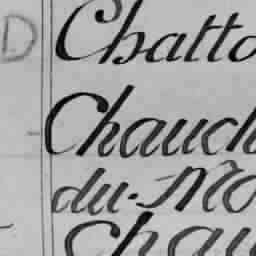 D Chatto
Chauch
du. Mo
Chau